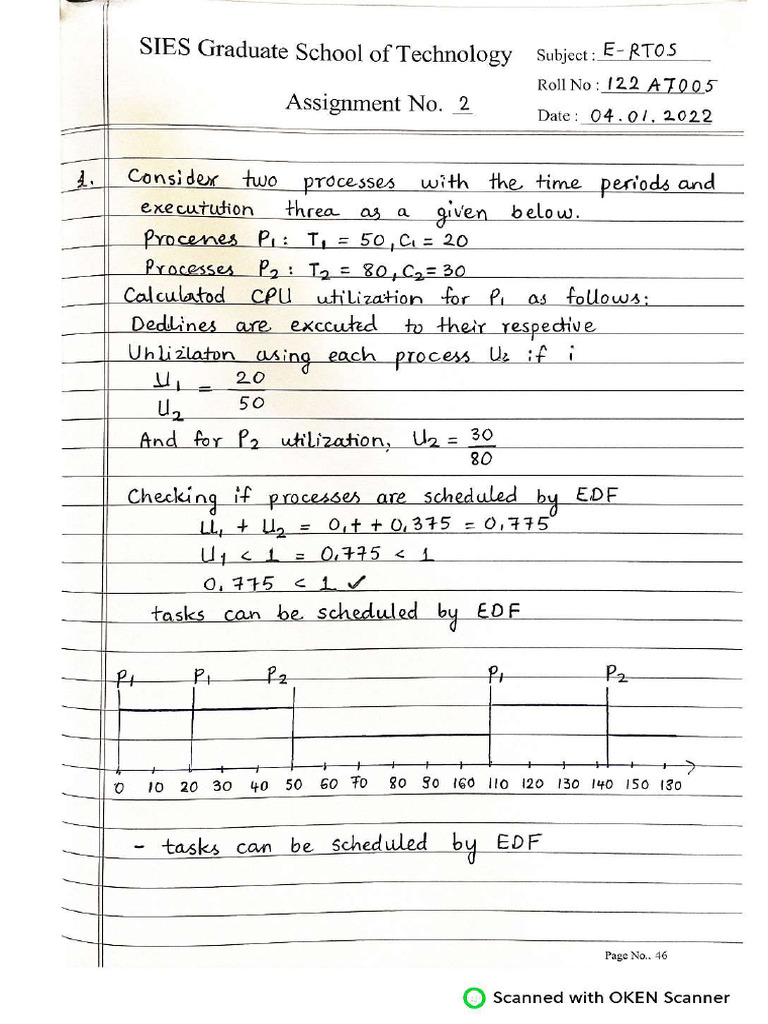 SIES Graduate School of Technology
Subject : E-RTOS
Roll No : 122 A7005
Assignment No. 2
Date : 04.01.2022
1. Consider two processes with the time periods and
executution threa as a given below.
Procenes P1 : T1 = 50, C1 = 20
Processes P2 : T2 = 80, C2 = 30
Calculatod CPU utilization for P1 as follows:
Dedlines are exccuted to their respective
Uhlizlaton using each process U2 if i
U1 = 20
U2 50
And for P2 utilization, U2 = 30
80
Checking if processes are scheduled by EDF
U1 + U2 = 0,t + 0,375 = 0,775
U1 < 1 = 0,775 < 1
0,775 < 1 ✓
tasks can be scheduled by EDF
P1 P1 P2 P1 P2
0 10 20 30 40 50 60 70 80 90 160 110 120 130 140 150 180
- tasks can be scheduled by EDF
Page No.. 46
Scanned with OKEN Scanner